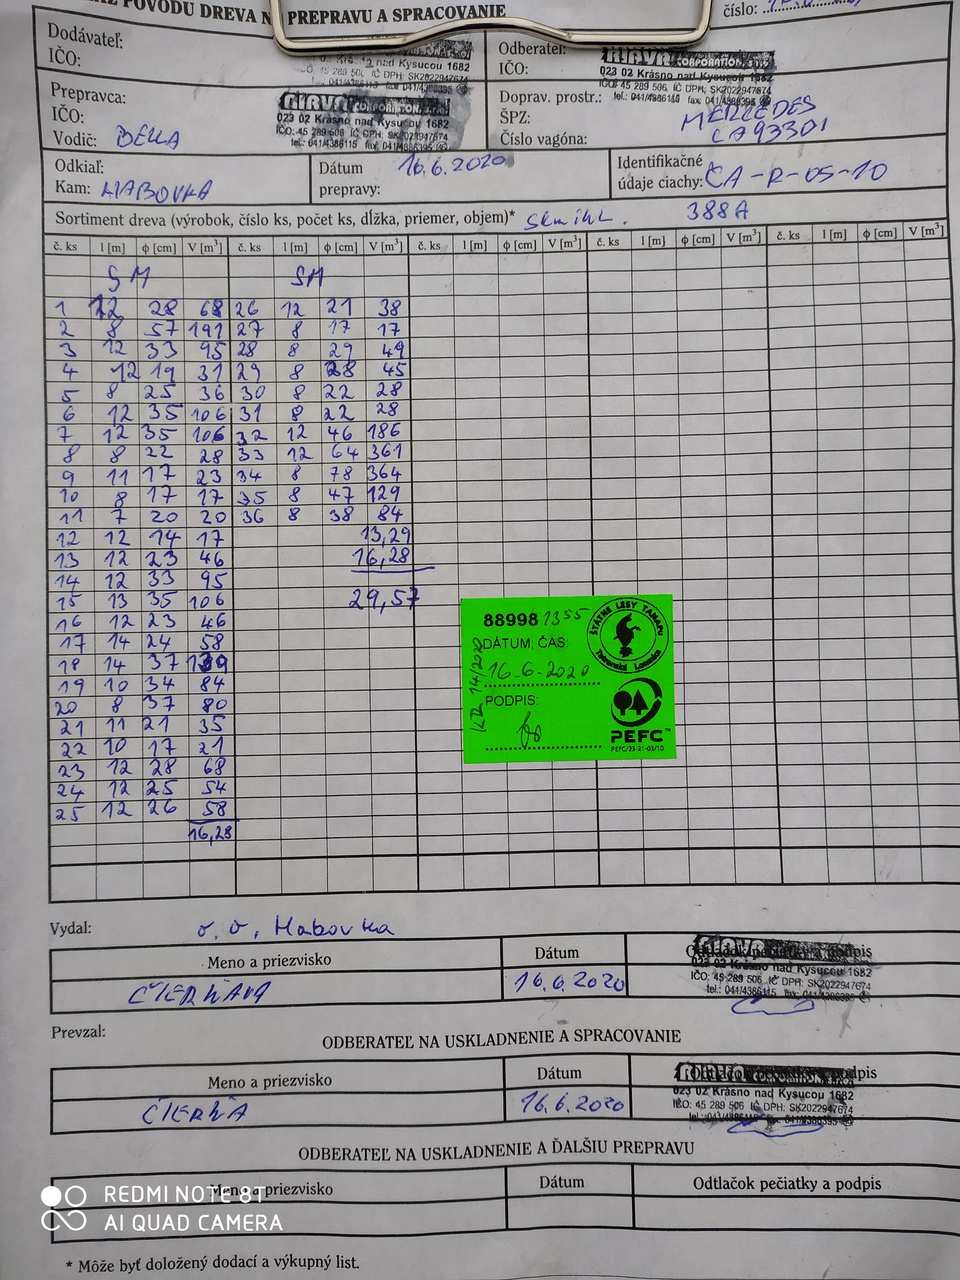 POVODU DREVA NA PREPRAVU A SPRACOVANIE
číslo:
Dodávateľ:
IČO:
nad Kysucou 1682
45 289 506, IČ DPH: SK2022947674
Odberateľ:
IČO:
CORPORATION
023 02 Krásno nad Kysucou 1682
IČO: 45 289 506, IČ DPH: SK2022947674
tel.: 041/4386115 fax: 041/4386395
Prepravca:
IČO:
Vodič: BELLA
CORPORATION
023 02 Krásno nad Kysucou 1682
IČO: 45 289 506 IČ DPH: SK2022947674
tel.: 041/4386115 fax: 041/4386395
Doprav. prostr.: MERCEDES
ŠPZ: CA933DI
Číslo vagóna:
Odkiaľ:
Kam: HABOVKA
Dátum prepravy: 16.6.2020
Identifikačné
údaje ciachy: ČA-R-05-10
Sortiment dreva (výrobok, číslo ks, počet ks, dĺžka, priemer, objem)* 388A
č. ks l [m] ϕ [cm] V [m³] č. ks l [m] ϕ [cm] V [m³] č. ks l [m] ϕ [cm] V [m³] č. ks l [m] ϕ [cm] V [m³] č. ks l [m] ϕ [cm] V [m³]
SM SM
1 12 28 68 26 12 21 38
2 8 57 191 27 8 17 17
3 12 33 95 28 8 29 49
4 12 19 31 29 8 28 45
5 8 25 36 30 8 22 28
6 12 35 106 31 8 22 28
7 12 35 106 32 12 46 186
8 8 22 28 33 12 64 361
9 11 17 23 34 8 78 364
10 8 17 17 35 8 47 129
11 7 20 20 36 8 38 84
12 12 14 17 13,29
13 12 23 46 16,28
14 12 33 95
15 13 35 106 29,57
16 12 23 46
17 14 24 58
18 14 37 139
19 10 34 84
20 8 37 80
21 11 21 35
22 10 17 21
23 12 28 68
24 12 25 54
25 12 26 58
16,28
88998 1355
DÁTUM, ČAS:
16-6-2020
PODPIS:
14/2020
ŠTÁTNE LESY TANAPU
Tatranská Lomnica
PEFC™
PEFC/23-21-03/10
Vydal: o. o. Habovka
Meno a priezvisko Dátum Odtlačok pečiatky a podpis
16.6.2020
023 02 Krásno nad Kysucou 1682
IČO: 45 289 506 IČ DPH: SK2022947674
tel.: 041/4386115 fax: 041/4386395
Prevzal:
ODBERATEĽ NA USKLADNENIE A SPRACOVANIE
Meno a priezvisko Dátum Odtlačok pečiatky a podpis
16.6.2020
023 02 Krásno nad Kysucou 1682
IČO: 45 289 506 IČ DPH: SK2022947674
ODBERATEĽ NA USKLADNENIE A ĎALŠIU PREPRAVU
Meno a priezvisko Dátum Odtlačok pečiatky a podpis
REDMI NOTE 8T
AI QUAD CAMERA
* Môže byť doložený dodací a výkupný list.